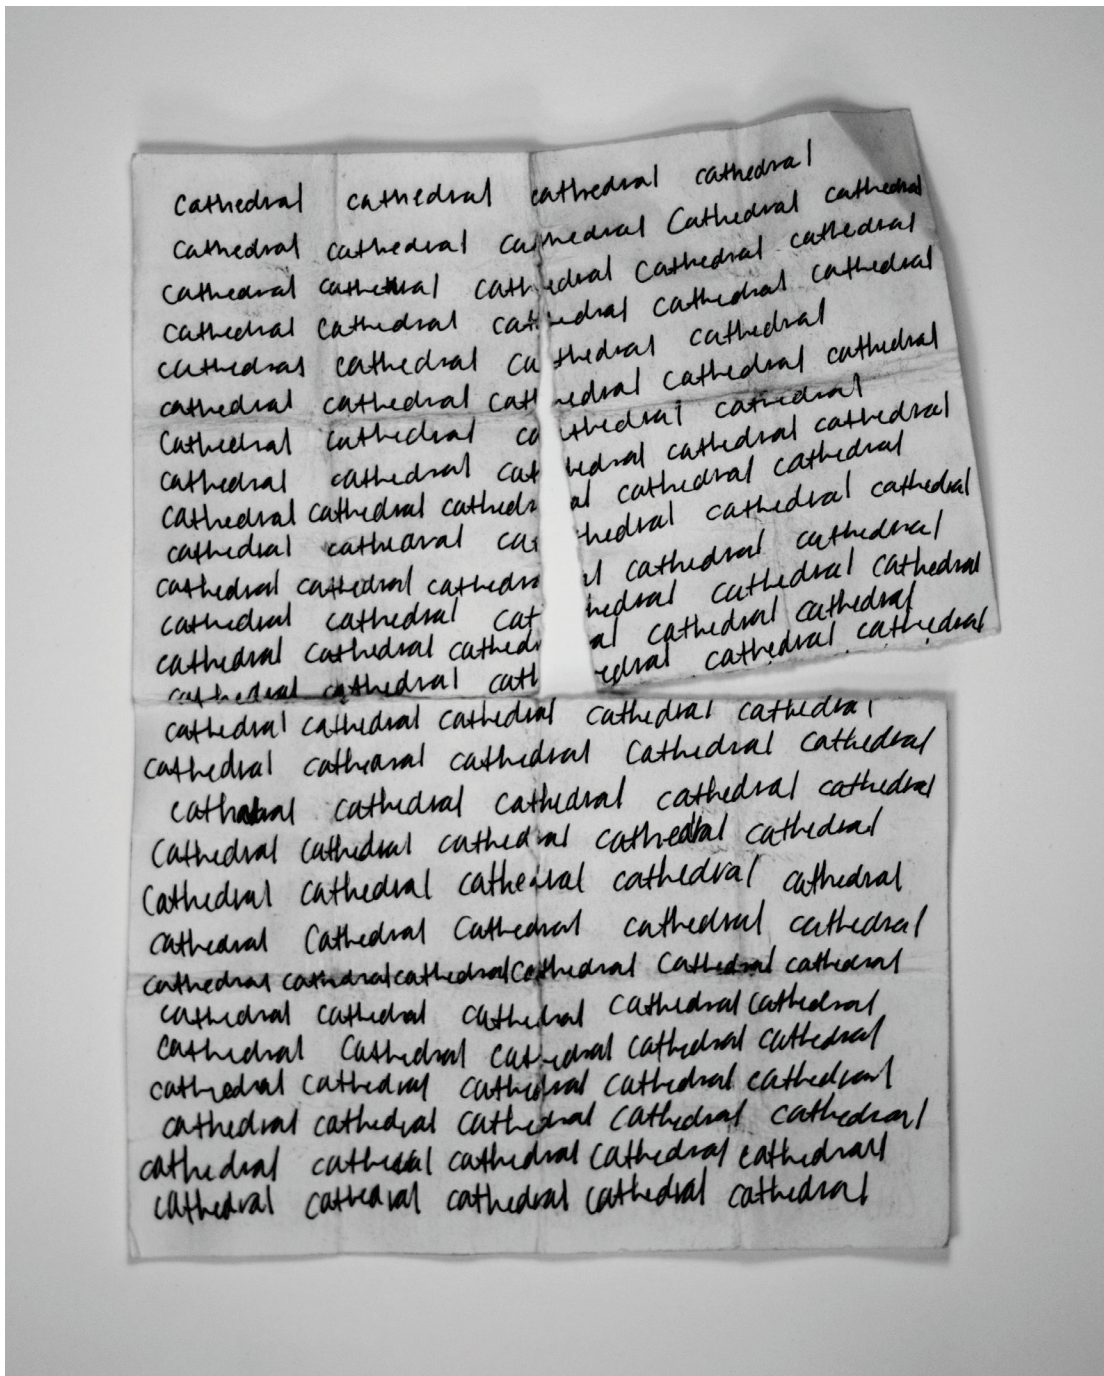 cathedral cathedral cathedral cathedral
cathedral cathedral cathedral Cathedral cathedral
cathedral cathedral cathedral Cathedral cathedral
cathedral cathedral cathedral cathedral cathedral
cathedral cathedral cathedral cathedral
cathedral cathedral cathedral cathedral cathedral
Cathedral cathedral cathedral cathedral
cathedral cathedral cathedral cathedral cathedral
cathedral cathedral cathedral cathedral cathedral
cathedral cathedral cathedral cathedral cathedral
cathedral cathedral cathedral cathedral cathedral
cathedral cathedral cathedral cathedral cathedral
cathedral cathedral cathedral cathedral cathedral
cathedral cathedral cathedral cathedral cathedral
cathedral cathedral cathedral cathedral cathedral
cathedral cathedral cathedral Cathedral cathedral
cathedral cathedral cathedral cathedral cathedral
Cathedral Cathedral cathedral cathedral cathedral
Cathedral Cathedral cathedral cathedral cathedral
cathedral Cathedral Cathedral cathedral cathedral
cathedral cathedral cathedral Cathedral Cathedral cathedral
cathedral cathedral cathedral cathedral cathedral
Cathedral Cathedral cathedral cathedral cathedral
cathedral cathedral cathedral cathedral cathedral
cathedral cathedral cathedral cathedral cathedral
cathedral cathedral cathedral cathedral cathedral
cathedral cathedral cathedral cathedral cathedral